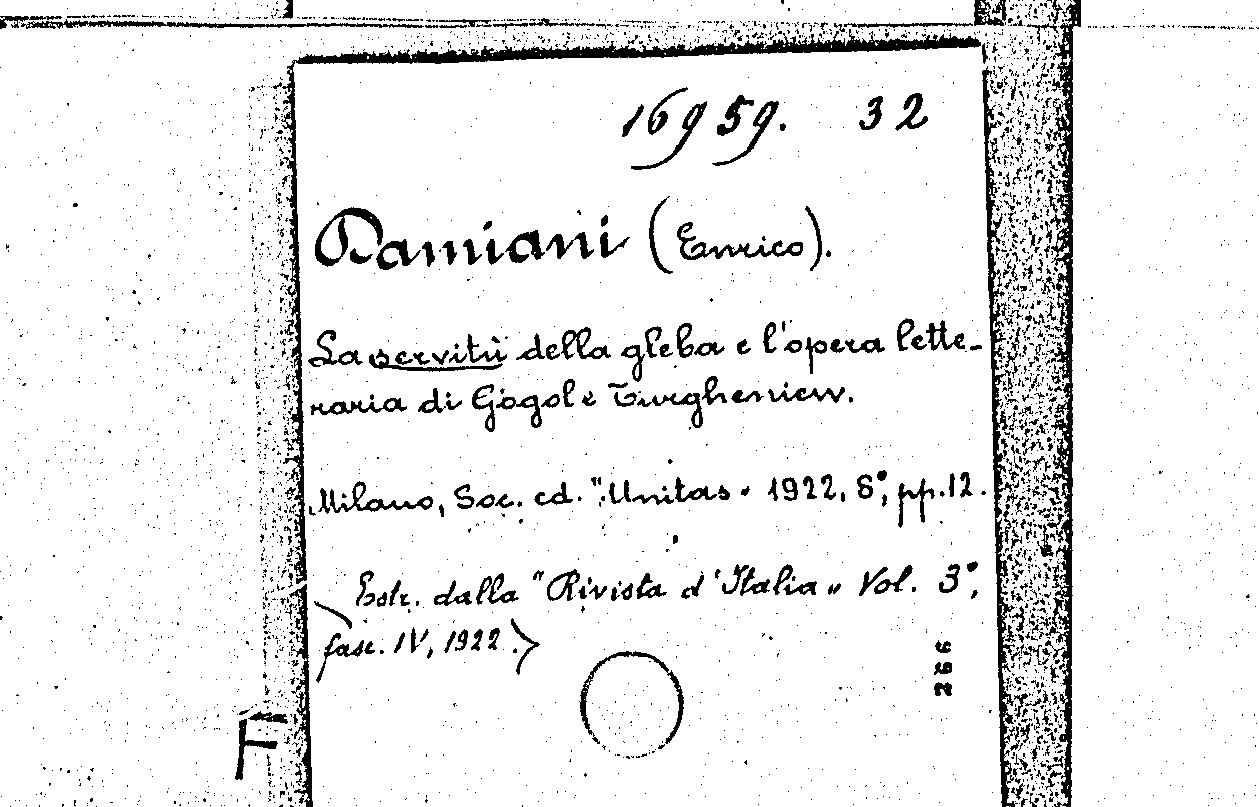 16959. 32
Damiani (Enrico).
La servitù della gleba e l'opera lette-
raria di Gogol e Turgheniew.
Milano, Soc. ed. "Unitas" 1922, 8°, pp. 12.
Estr. dalla "Rivista d'Italia" Vol. 3°,
fasc. IV, 1922.>
266
F